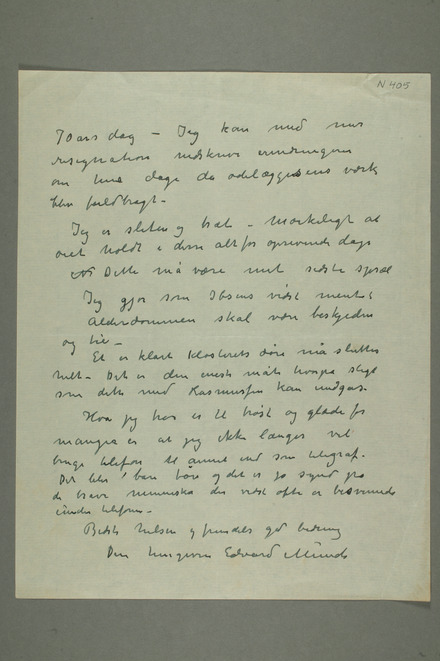 N 405
70 års dag – Jeg kan med mer
resignation nedskrive erindringene
om hine dage da ødelæggelsens værk
blev fuldbragt –
Jeg er sliten og træt – Mærkeligt at
øiet holdt i disse altfor oprivende dage
Dette må være mit sidste
Jeg gjør som Ibsens vidst mente
Alderdommen skal være beskjeden
og
Et er klart Klosterets døre må sluttes
helt – Det er den eneste måte hvorpå sligt
som dette med Rasmussen kan undgåes
Hva jeg har er til trøst og glæde for
mangen er at jeg ikke længer vil
bruge telefon til annet end som telegraf –
Det blir bare bøie og det er jo synd på
de brave mennesker der vidst ofte er
under telefonen –
Bedste hilsen og fremdeles god bedring
Din hengivne Edvard Munch